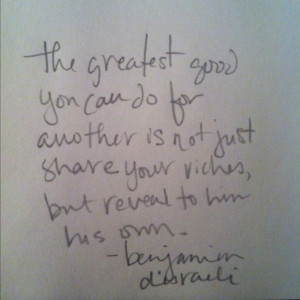 the greatest good
you can do for
another is not just
share your riches,
but reveal to him
his own.
-benjamin
disraeli